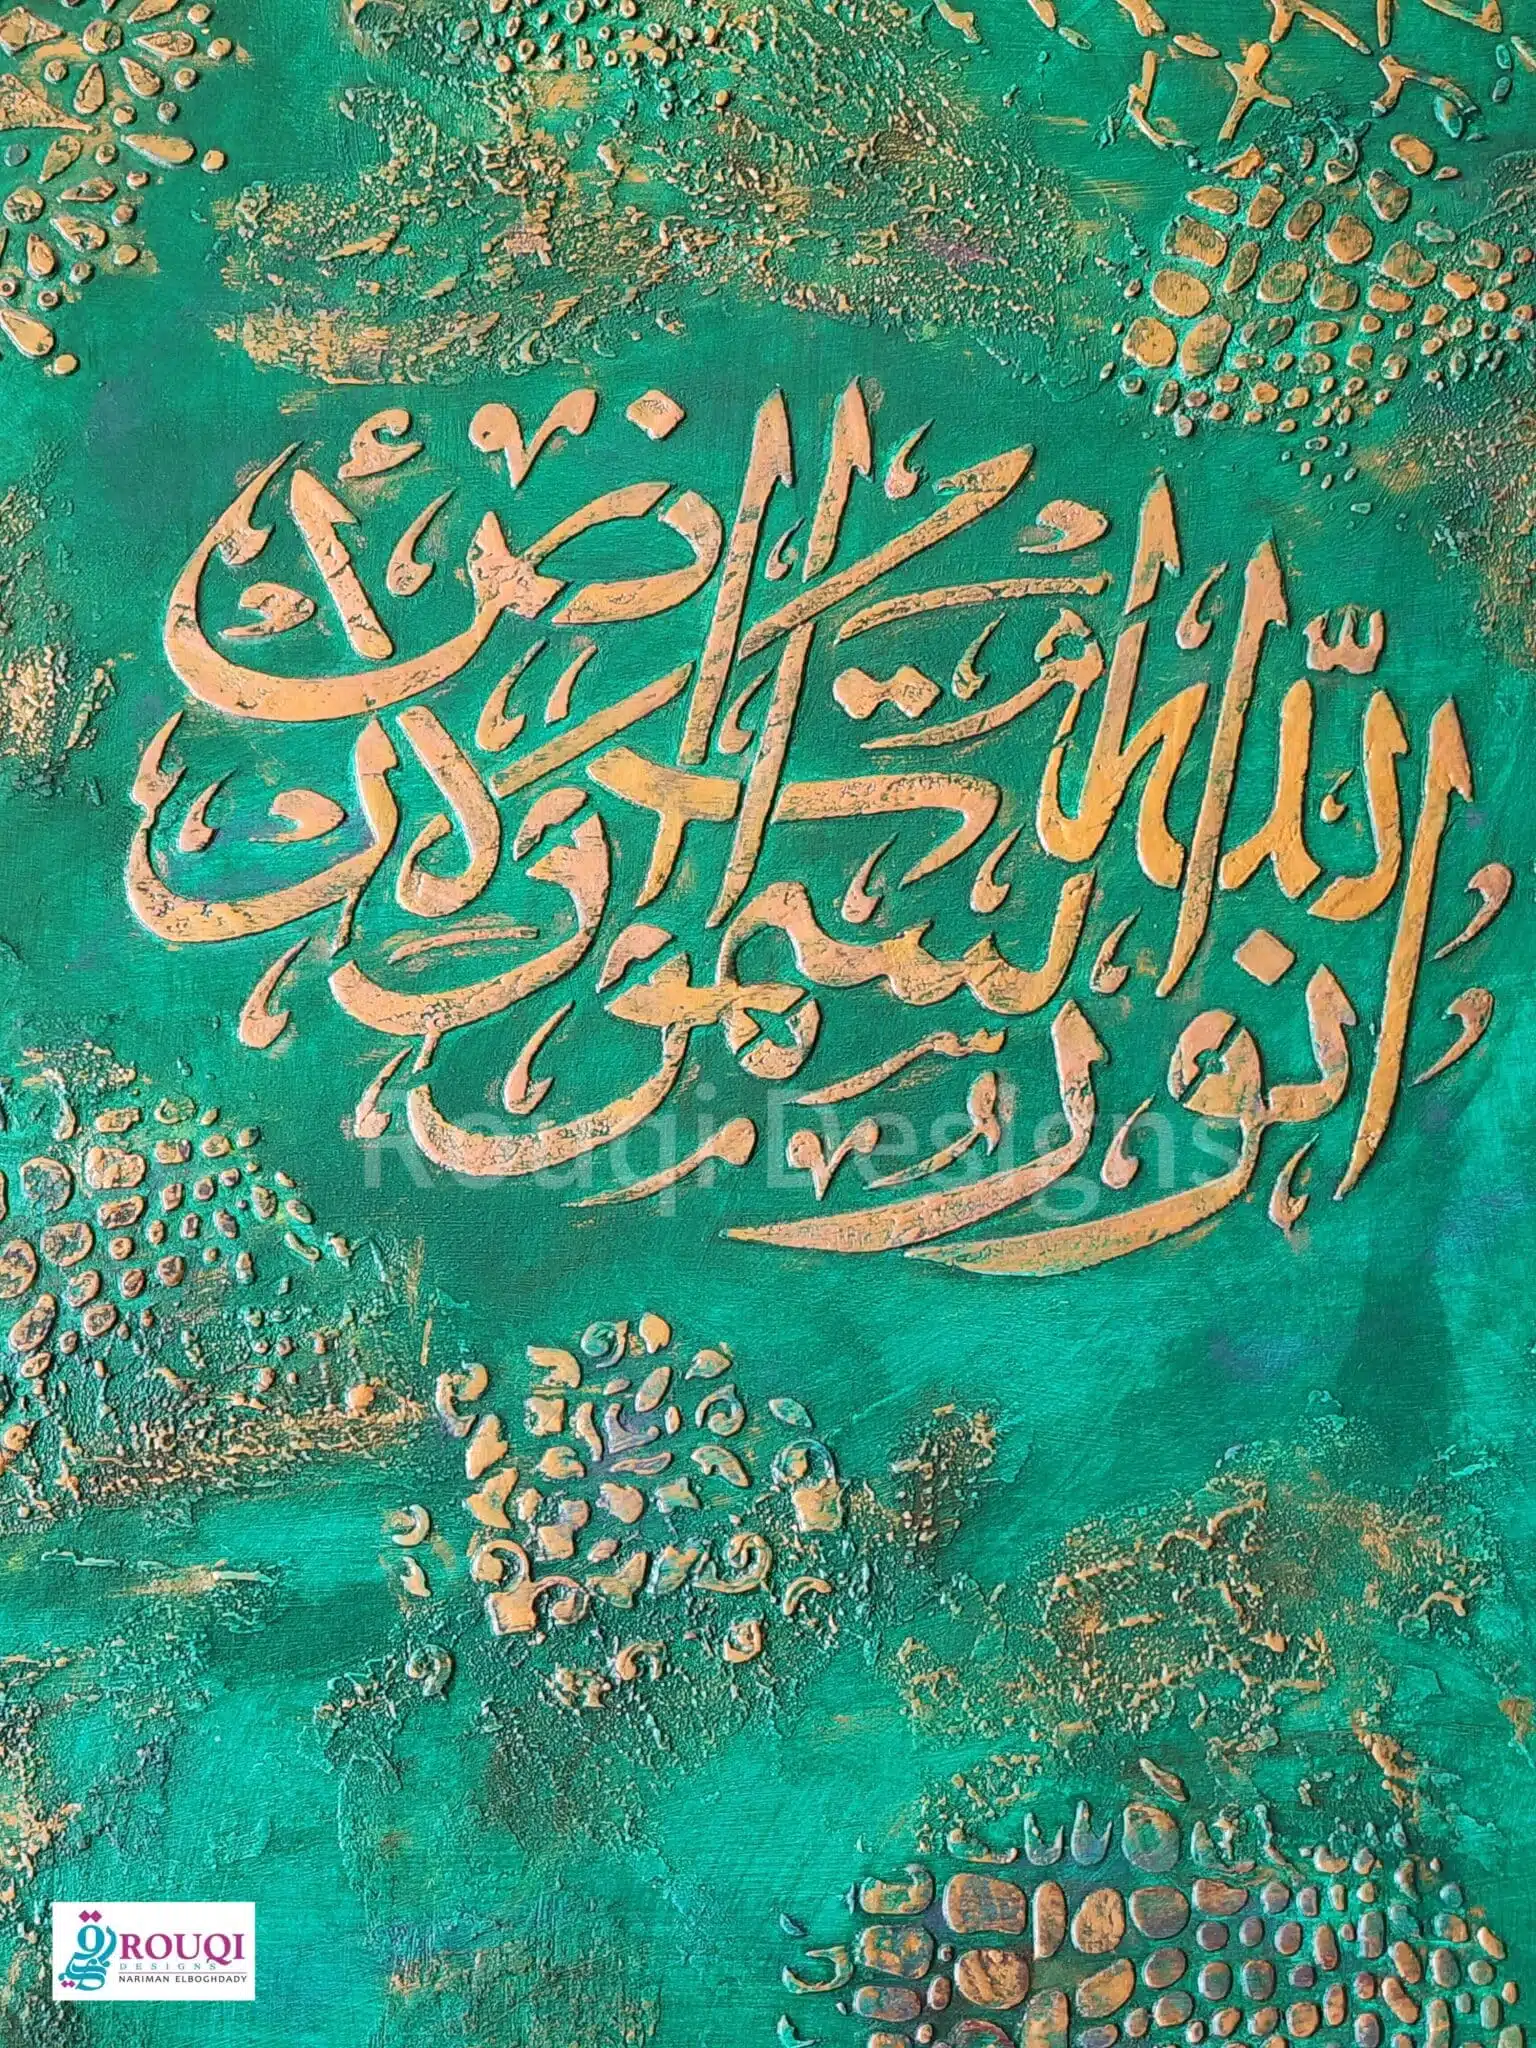 الله نور السموات والأرض
Rouqi Designs
ROUQI
DESIGNS
NARIMAN ELBOGHDADY